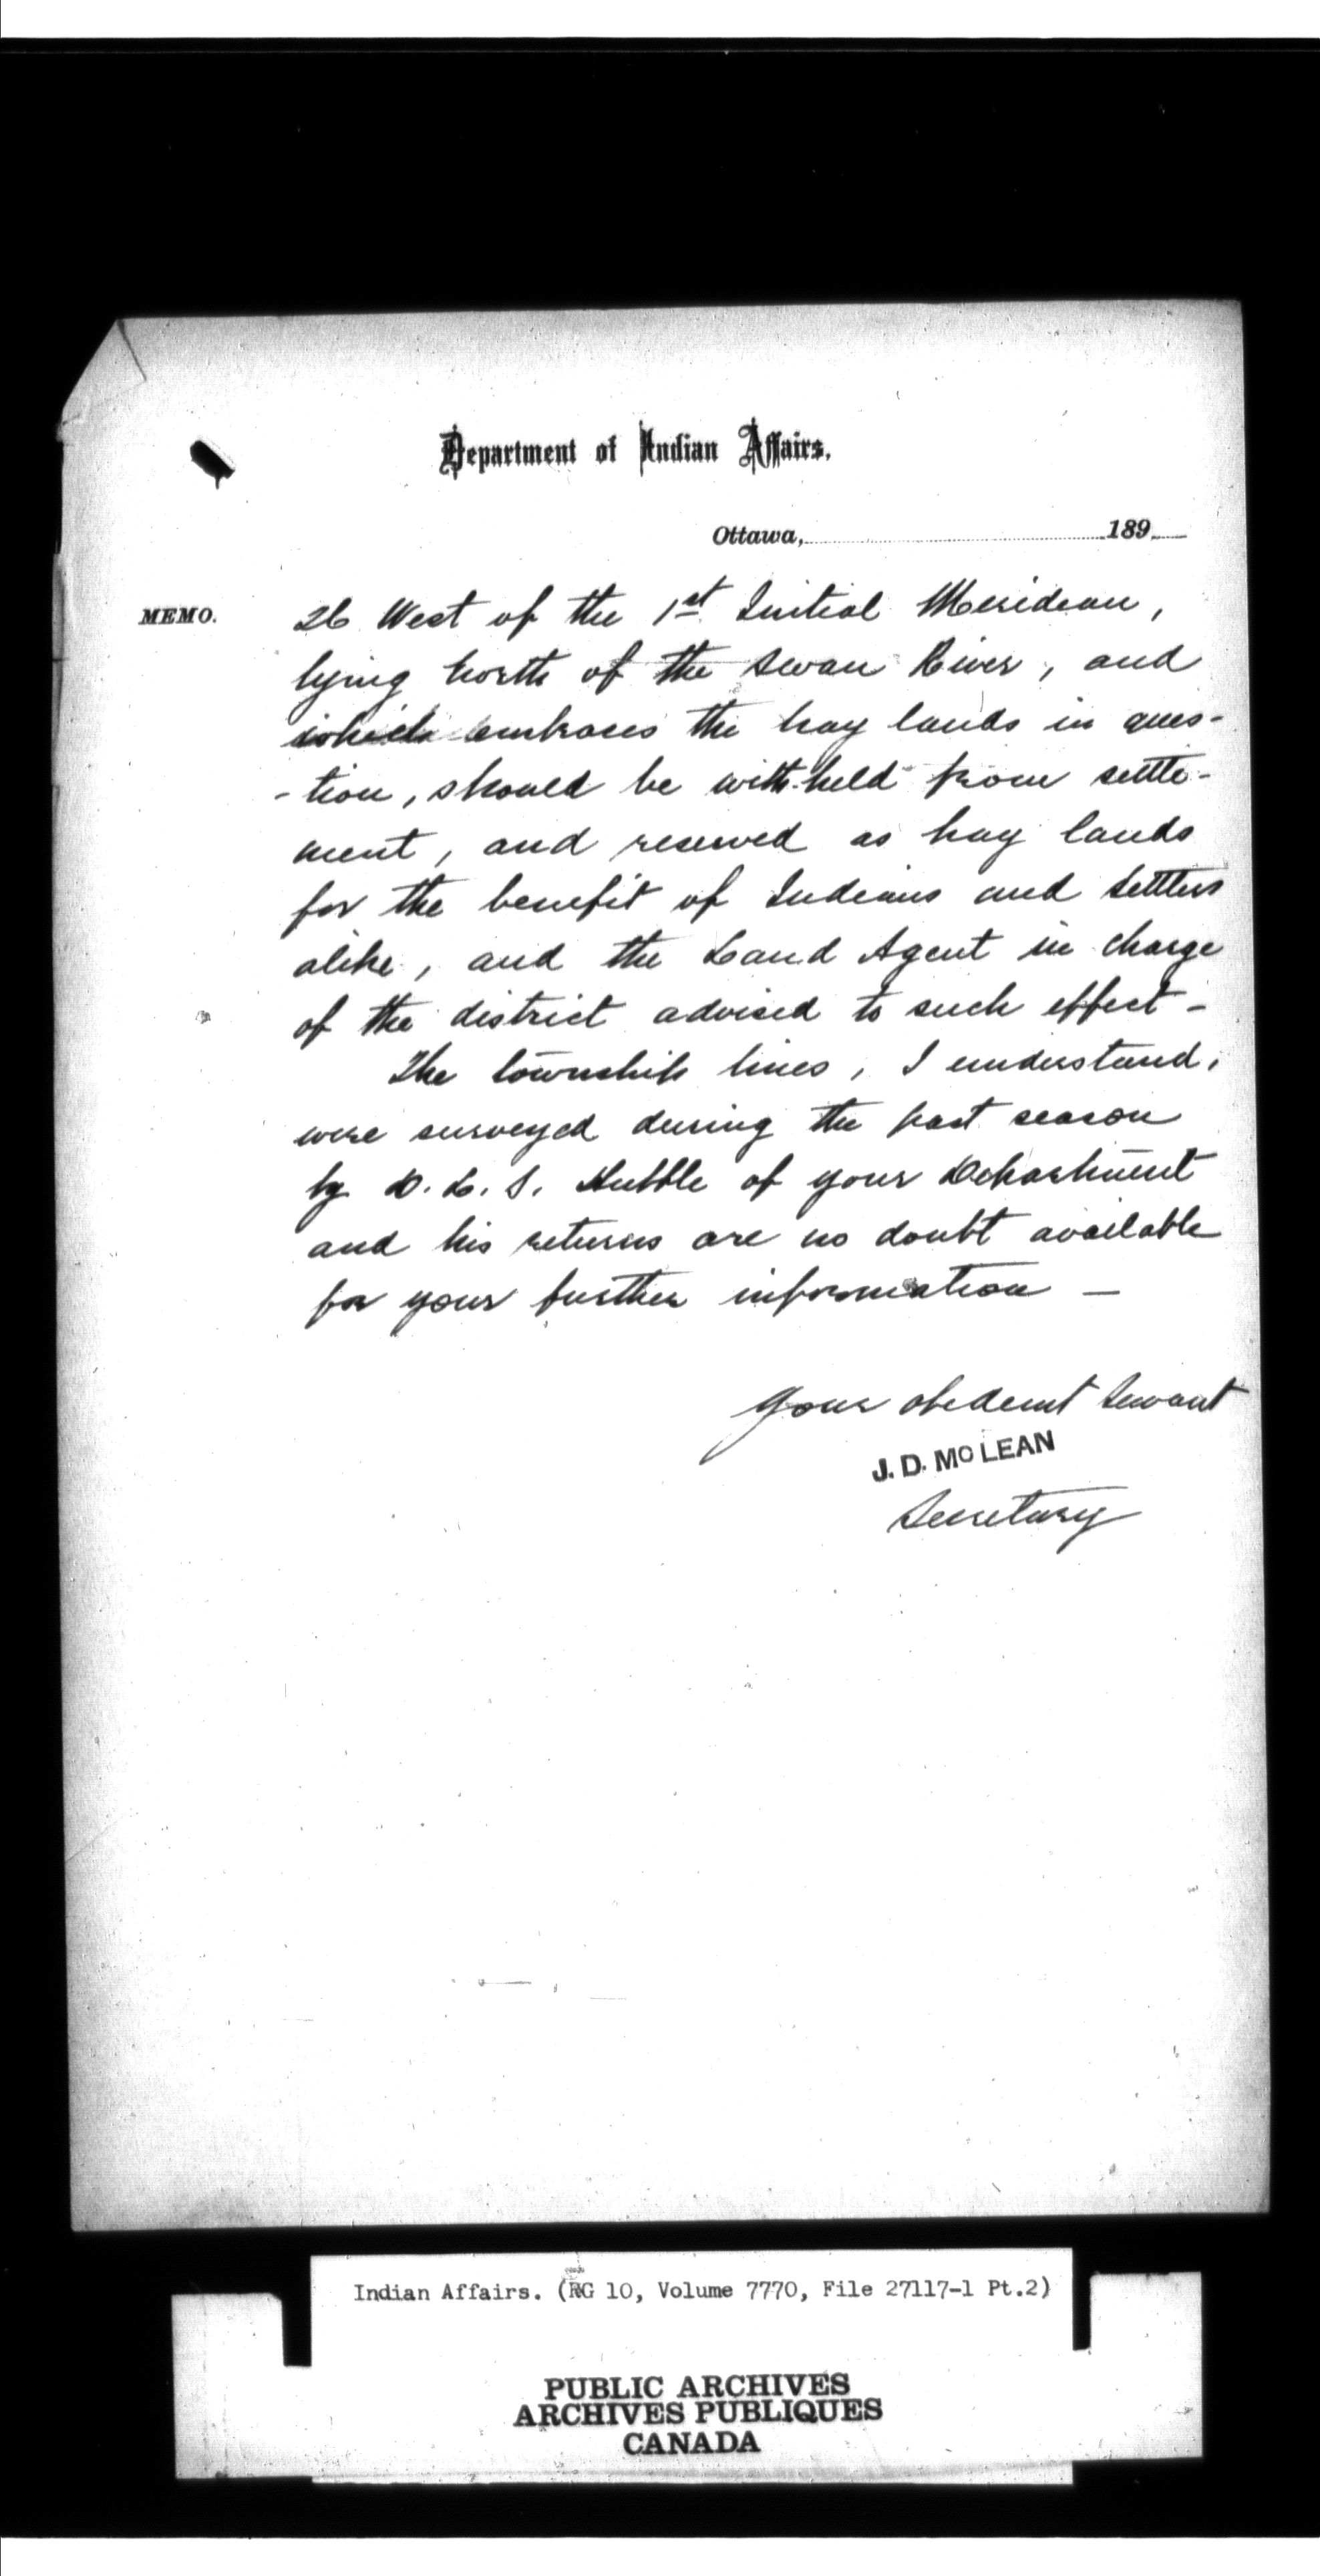 Department of Indian Affairs.
Ottawa, 189
MEMO.
26 West of the 1st Initial Meridian,
lying North of the Swan River, and
which embraces the hay lands in ques-
-tion, should be with-held from settle-
ment, and reserved as hay lands
for the benefit of Indians and Settlers
alike, and the Land Agent in charge
of the district advised to such effect -
The township lines, I understand,
were surveyed during the past season
by D. L. S. Hubble of your Department
and his returns are no doubt available
for your further information -
Your obedient Servant
J. D. McLEAN
Secretary
Indian Affairs. (RG 10, Volume 7770, File 27117-1 Pt.2)
PUBLIC ARCHIVES
ARCHIVES PUBLIQUES
CANADA